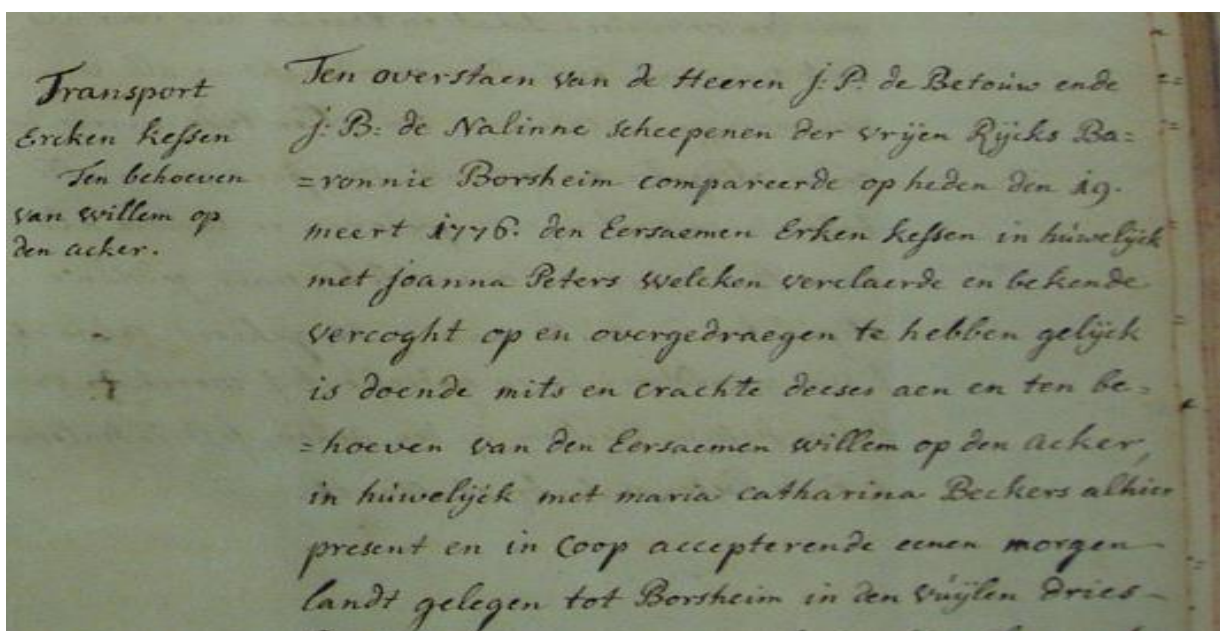 Transport
Ercken Kessen
Ten behoeven
van willem op
den acker.
Ten overstaen van de Heeren J: P: de Betouw ende
J: B: de Nalinne Scheepenen der vrÿen Rÿcks Ba=
=ronnie Borsheim compareerde op heden den 19.
meert 1776. den Eersaemen Erken Kessen in húwelÿck
met Joanna Peters welcken verclaerde en bekende
vercoght op en overgedraegen te hebben gelÿck
is doende mits en crachte deeses aen en ten be=
=hoeven van den Eersaemen willem op den acker,
in húwelÿck met maria catharina Beckers alhier
present en in Coop accepterende eenen morgen
landt gelegen tot Borsheim in den vúÿlen dries